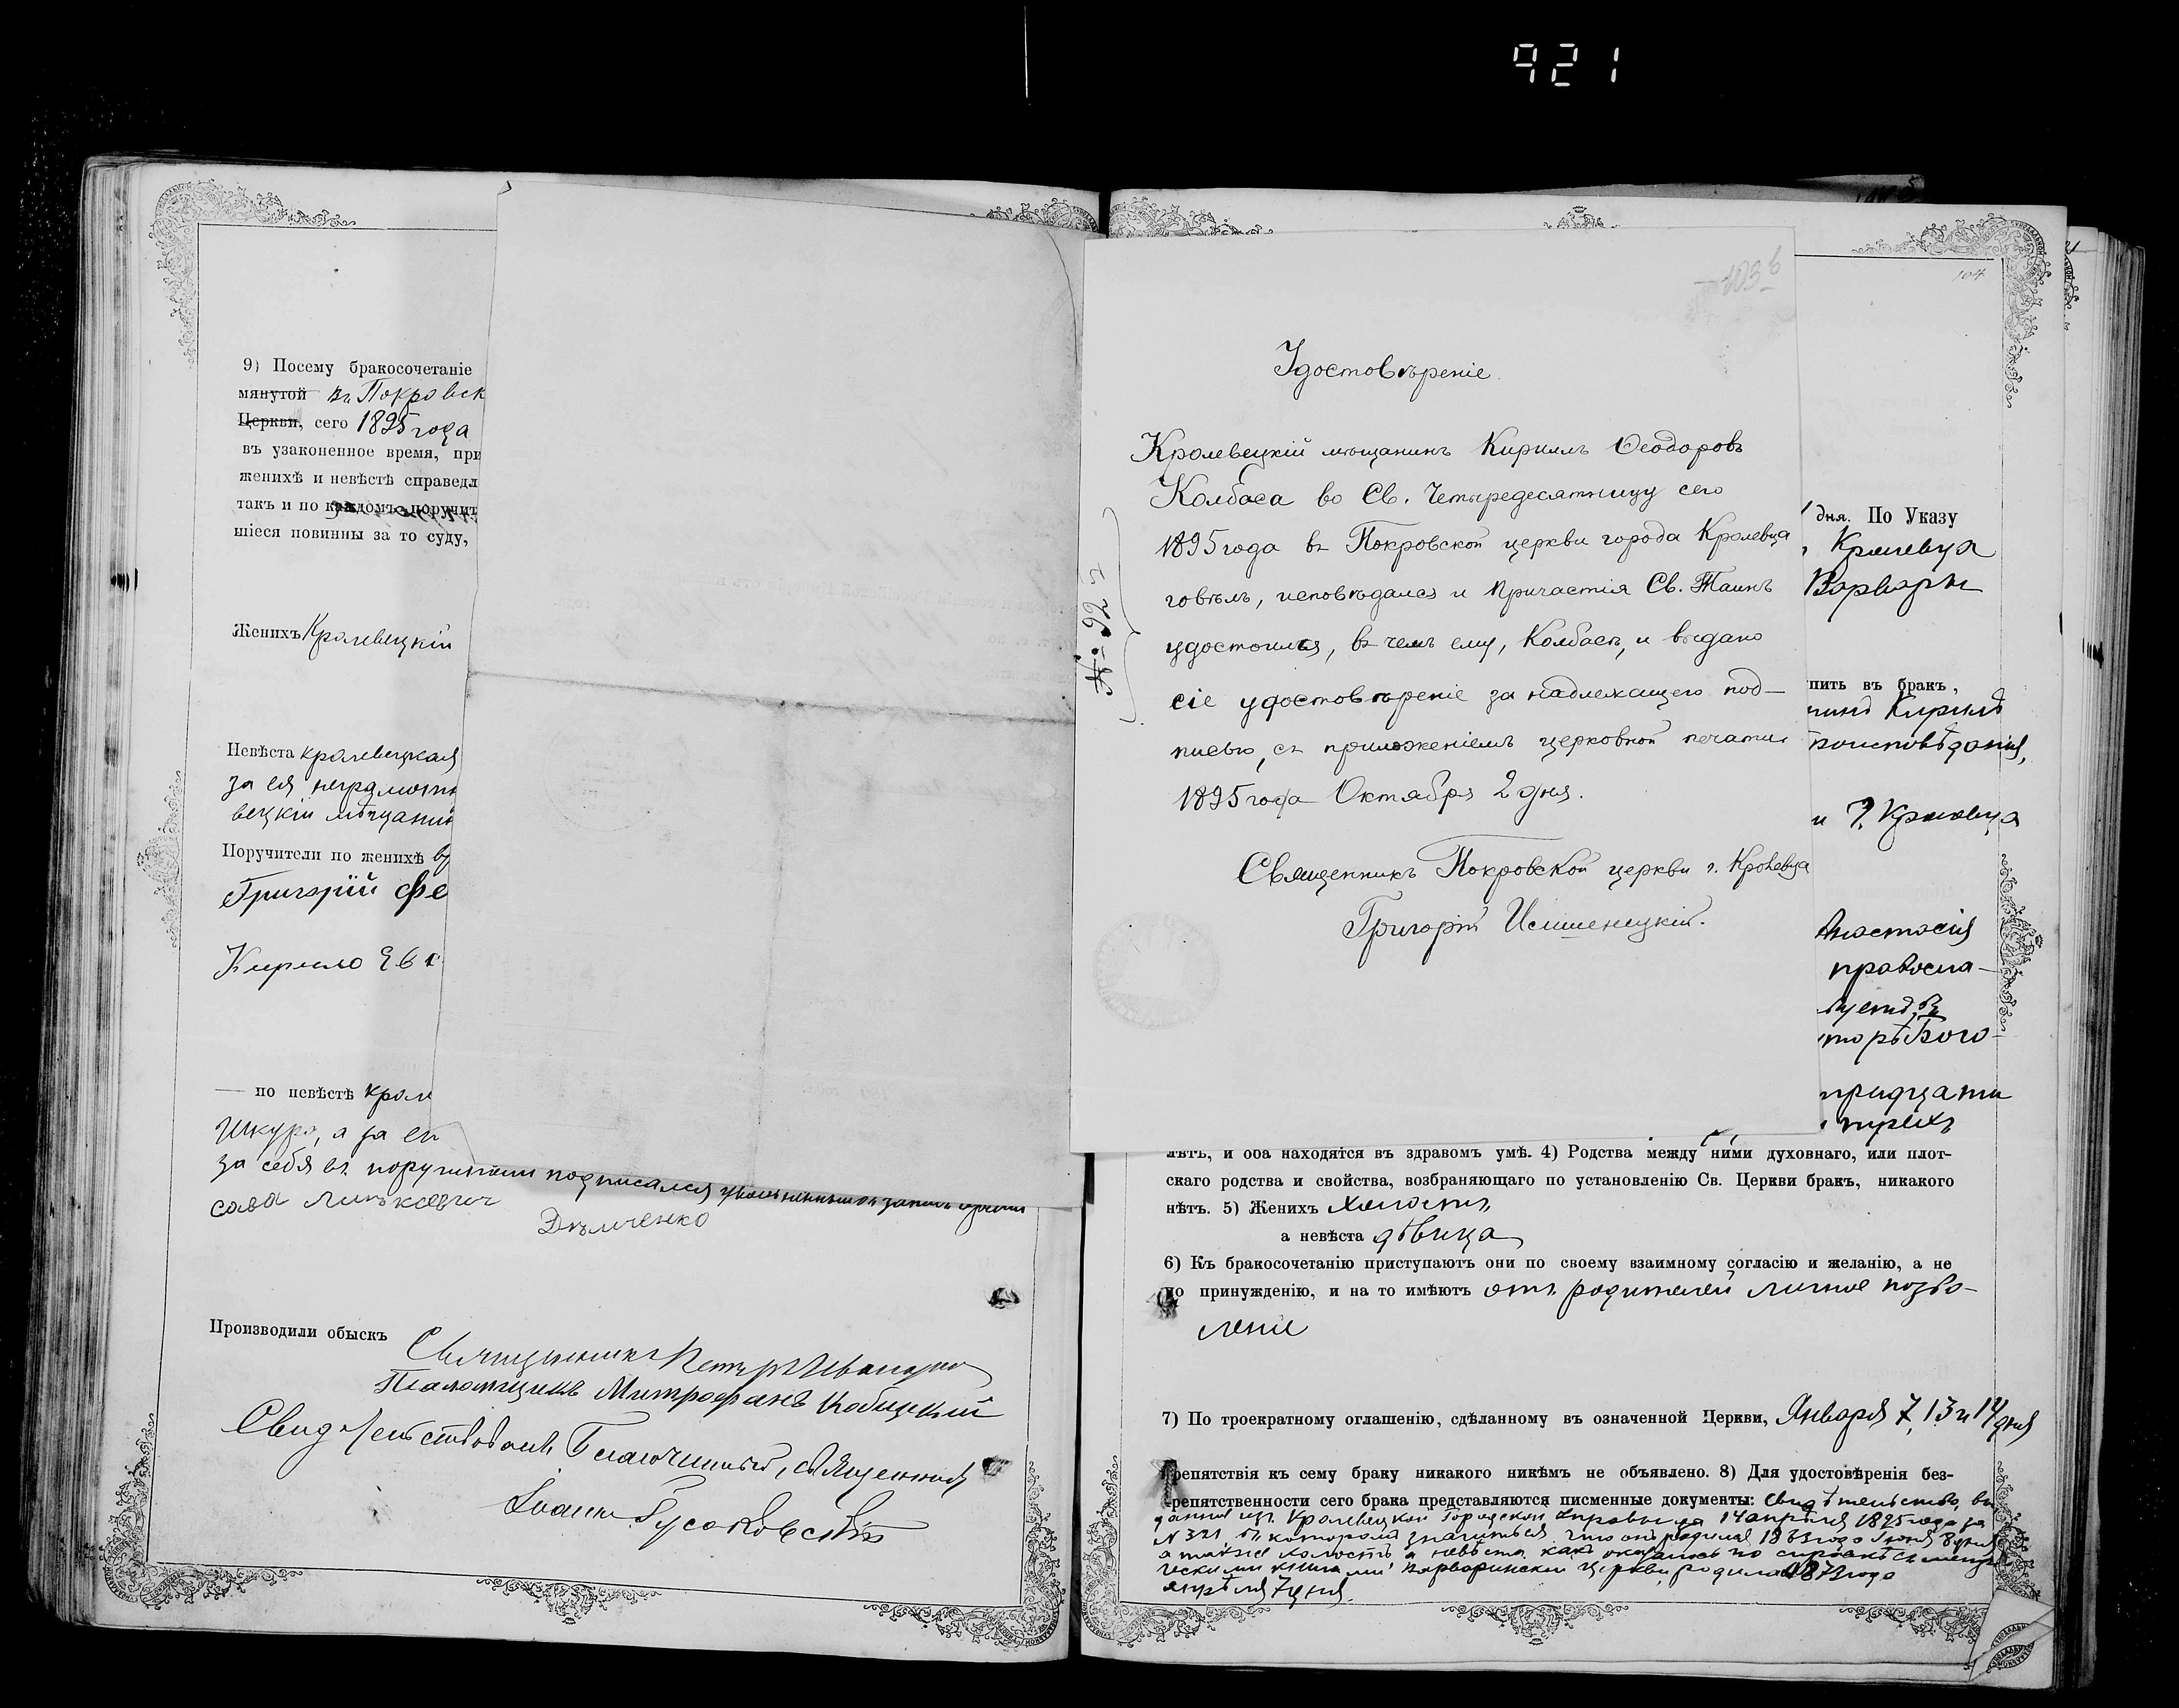 921
9) Посему бракосочетаніе
мянутой въ Покровск
Церкви, сего 1895 года
въ узаконенное время, при
женихѣ и невѣстѣ справедл
такъ и по каждомъ поручит
шіеся повинны за то суду,
Женихъ Кролевецкій
Невѣста кролевецкая
за ея неграмотн
вецкій мѣщанин
Поручители по женихѣ
Григорій Фе
Кирило Ев
— по невѣстѣ крол
Шкура, а за
за себя въ поручители подписался
сава
Дѣмченко
Производили обыскъ
Священникъ Петръ
Псаломщикъ Митрофанъ
Свидѣтельствовалъ Благочинный, священникъ
Іоаннъ Гусаковскій
103 б
Удостовѣреніе
Кролевецкій мѣщанинъ Кириллъ Ѳеодоровъ
Колбаса во Св. Четыредесятницу сего
1895 года въ Покровской церкви города Кролевца
говѣлъ, исповѣдался и Причастія Св. Таинъ
удостоился, въ чемъ ему, Колбасѣ, и выдано
сіе удостовѣреніе за надлежащею под-
писью, съ приложеніемъ церковной печати
1895 года Октября 2 дня.
Священникъ Покровской церкви г. Кролевца
Григорій Исишенецкій.
104
дня. По Указу
Кролевца
Варвары
пить въ бракъ,
Кирилъ
исповѣданія,
и г. Кролевца
Анастасія
правосла-
Бого-
тридцати
трехъ
лѣтъ, и оба находятся въ здравомъ умѣ. 4) Родства между ними духовнаго, или плот-
скаго родства и свойства, возбраняющаго по установленію Св. Церкви бракъ, никакого
нѣтъ. 5) Женихъ холостъ,
а невѣста дѣвица
6) Къ бракосочетанію приступаютъ они по своему взаимному согласію и желанію, а не
по принужденію, и на то имѣютъ отъ родителей личное позво-
леніе
7) По троекратному оглашенію, сдѣланному въ означенной Церкви, Января 7, 13 и 14 дня
препятствія къ сему браку никакого никѣмъ не объявлено. 8) Для удостовѣренія без-
препятственности сего брака представляются писменные документы: свидѣтельство, вы
данное изъ Кролевецкой Городской Управы за 14 апрѣля 1895 года за
N 321 въ которомъ значится, что онъ родился 1863 года Іюня 8 дня,
а также холостъ, а невѣста, какъ оказалось по справкѣ съ метри
ческими книгами Варваринской церкви, родилась 1873 года
апрѣля 7 дня.